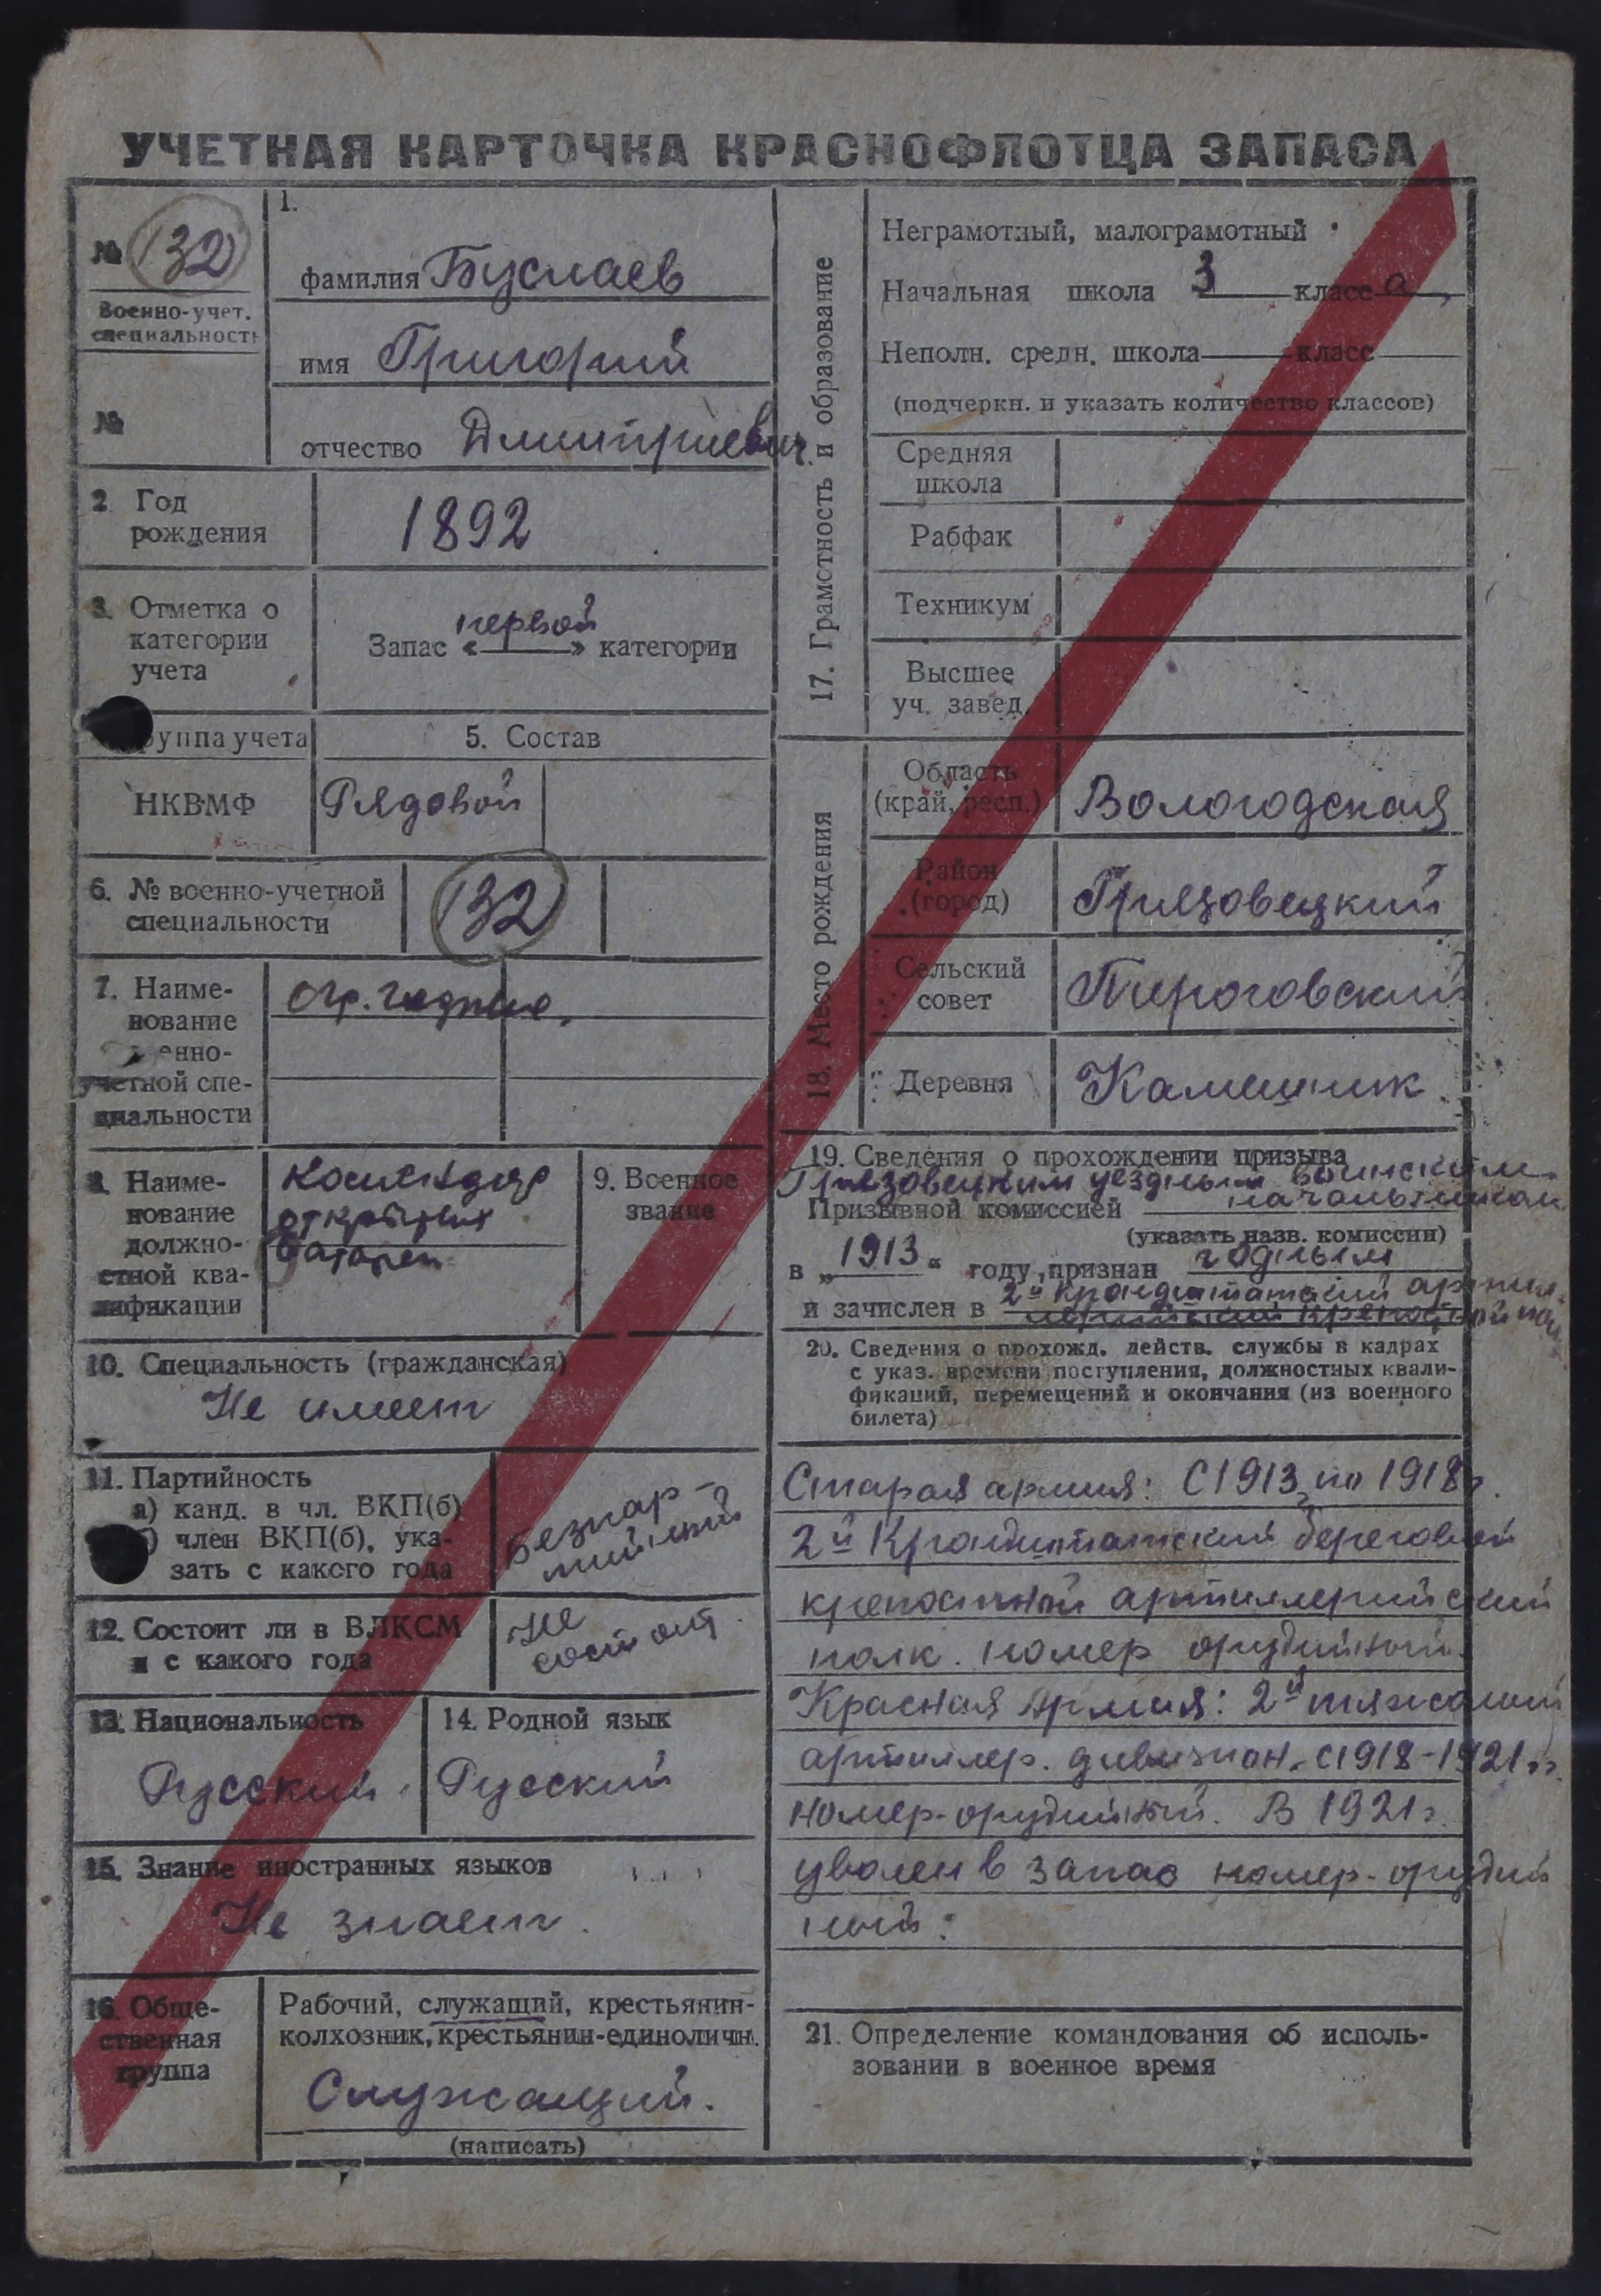 УЧЕТНАЯ КАРТОЧКА КРАСНОФЛОТЦА ЗАПАСА
№ 132
Военно-учет.
специальность
№
1.
фамилия Буслаев
имя Григорий
отчество Дмитриевич
2 Год
рождения
1892
3. Отметка о
категории
учета
первой
Запас «——» категории
руппа учета
5. Состав
НКВМФ
Рядовой
6. № военно-учетной
специальности
132
7. Наиме-
нование
енно-
учетной спе-
циальности
огр. годные.
8. Наиме-
нование
должно-
стной ква-
лификации
открытых
батарей
9. Военное
звание
10. Специальность (гражданская)
Не имеет
11. Партийность
а) канд. в чл. ВКП(б)
б) член ВКП(б), ука-
зать с какого года
Безпар-
тийный
12. Состоит ли в ВЛКСМ
и с какого года
Не
состоит.
13. Национальность
Русский.
14. Родной язык
Русский
15. Знание иностранных языков
Не знает.
16. Обще-
ственная
группа
Рабочий, служащий, крестьянин-
колхозник, крестьянин-единоличн.
Служащий.
(написать)
17. Грамотность и образование
Неграмотный, малограмотный
Начальная школа 3 класса,
Неполн. средн. школа —— класс
(подчеркн. и указать количество классов)
Средняя
школа
Рабфак
Техникум
Высшее
уч. завед.
18. Место рождения
Область
(край, респ.)
Вологодская
Район
(город)
Грязовецкий
Сельский
совет
Пироговский
Деревня
Камешник.
19. Сведения о прохождении призыва
Грязовецким уездным воинским
Призывной комиссией начальником
(указать назв. комиссии)
в „1913“ году, признан годным
2й Кронштатский артил-
и зачислен в лерийский крепостной
20. Сведения о прохожд. действ. службы в кадрах
с указ. времени поступления, должностных квали-
фикаций, перемещений и окончания (из военного
билета)
Старая армия: С 1913 по 1918г.
2й Кронштатский береговой
крепостной артиллерийский
полк. номер орудийный.
Красная Армия: 2й тяжолый
артиллер. дивизион. с 1918-1921гг.
номер-орудийный. В 1921г.
уволен в запас номер-орудий
ный.
21. Определение командования об исполь-
зовании в военное время